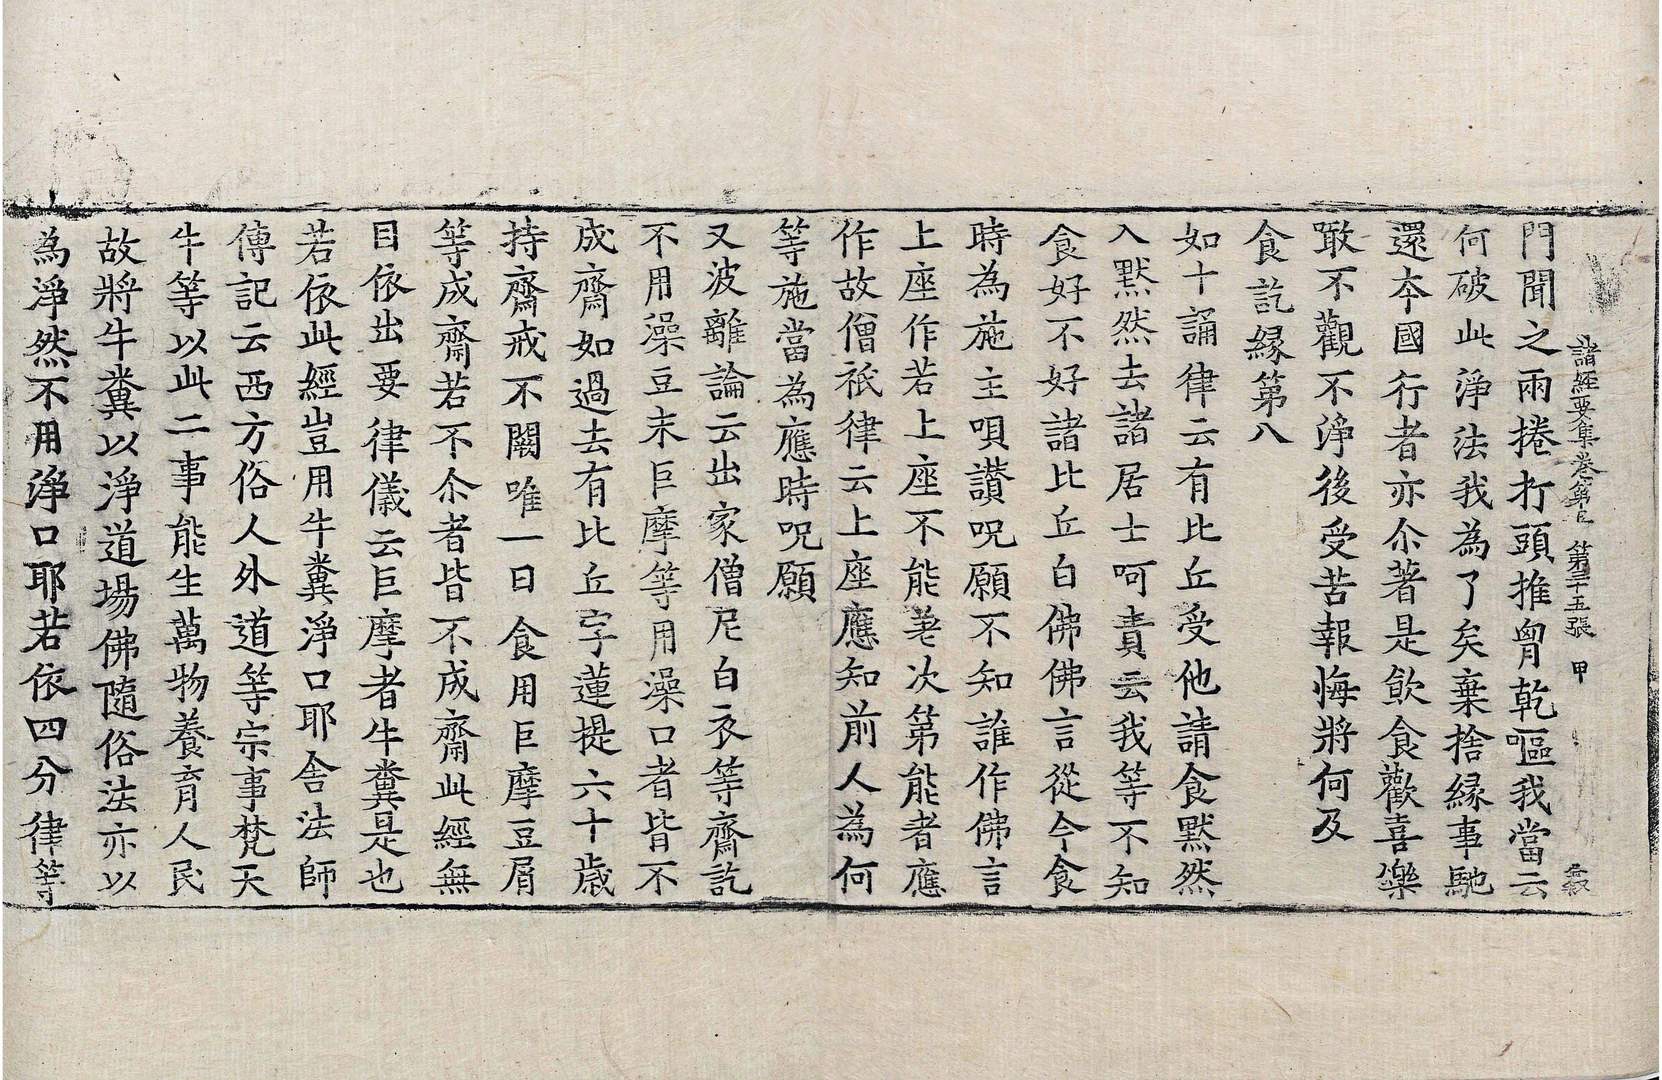 諸經要集卷第五 第三十五張 甲
門聞之兩捲打頭推胷乾嘔我當云
何破此淨法我為了矣棄捨緣事馳
還本國行者亦尒著是飲食歡喜樂
噉不觀不淨後受苦報悔將何及
食訖緣第八
如十誦律云有比丘受他請食默然
入默然去諸居士呵責云我等不知
食好不好諸比丘白佛佛言從今食
時為施主唄讚呪願不知誰作佛言
上座作若上座不能差次第能者應
作故僧祇律云上座應知前人為何
等施當為應時呪願
又波離論云出家僧尼白衣等齋訖
不用澡豆末巨摩等用澡口者皆不
成齋如過去有比丘字蓮提六十歲
持齋戒不闕唯一日食用巨摩豆屑
等成齋若不尒者皆不成齋此經無
目依出要律儀云巨摩者牛糞是也
若依此經豈用牛糞淨口耶舍法師
傳記云西方俗人外道等宗事梵天
牛等以此二事能生萬物養育人民
故將牛糞以淨道場佛隨俗法亦以
為淨然不用淨口耶若依四分律等